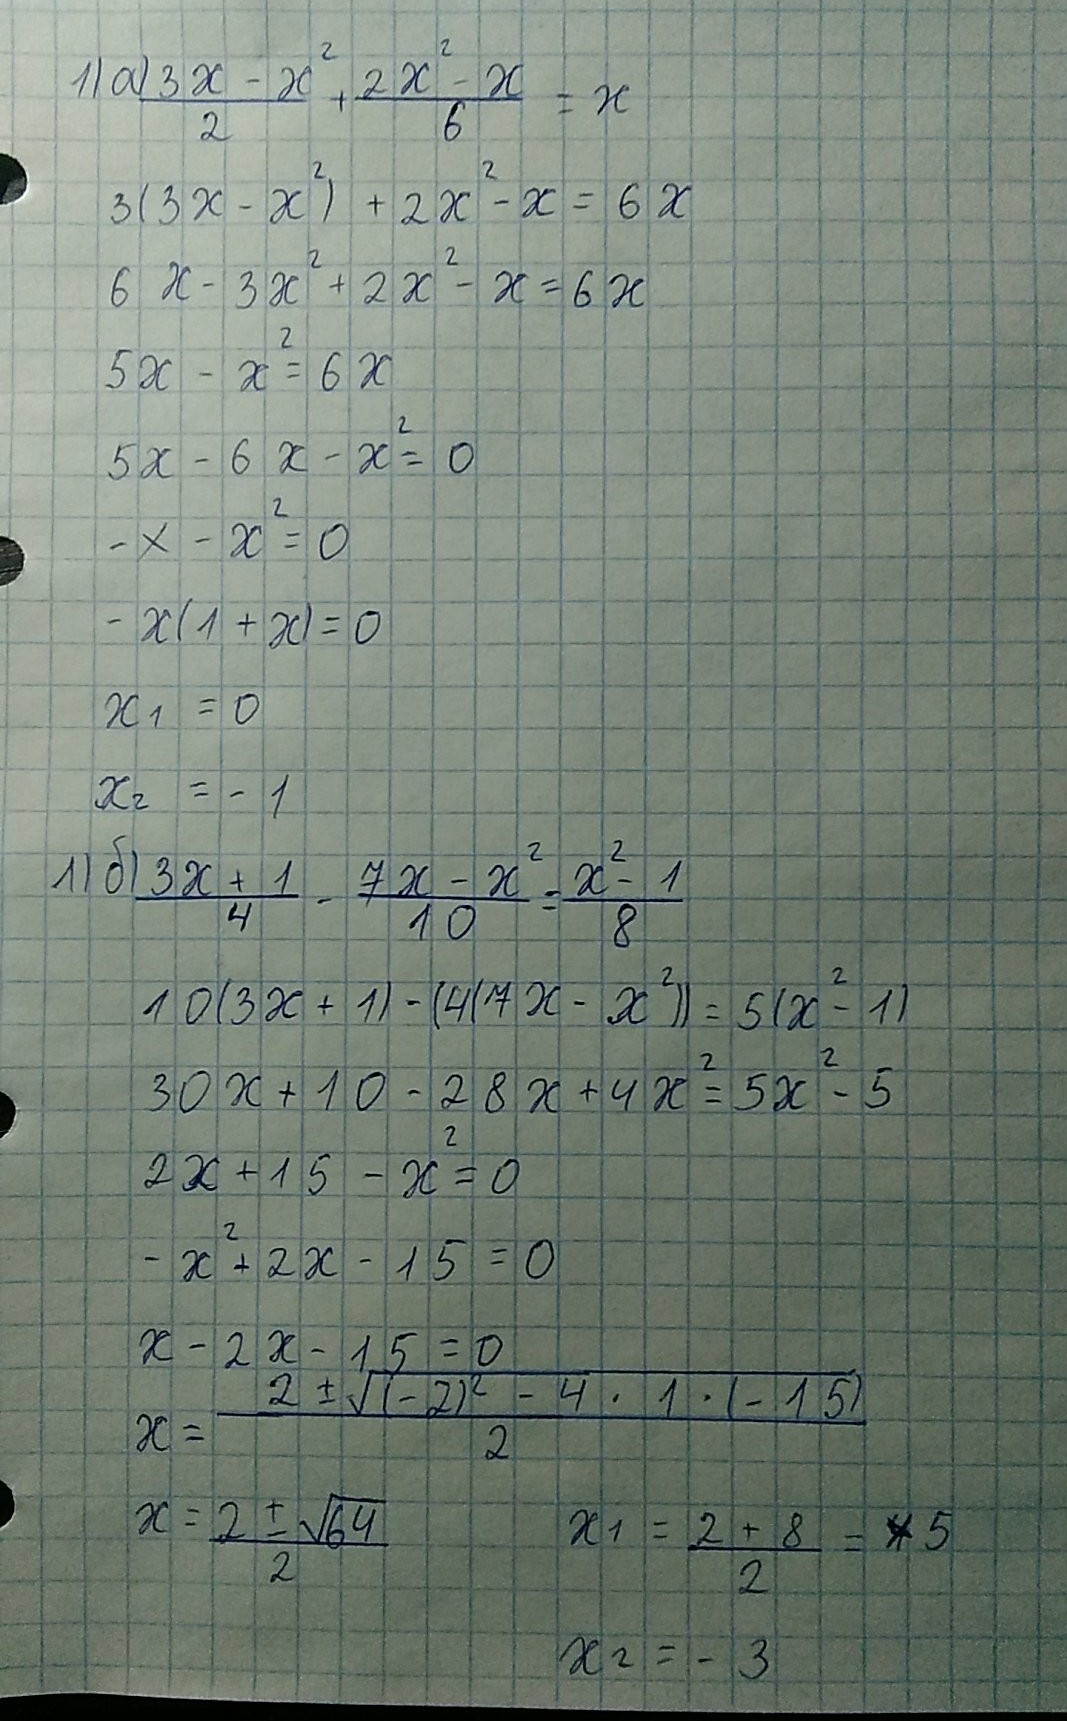 1) а) (3x - x²)/2 + (2x² - x)/6 = x
3(3x - x²) + 2x² - x = 6x
6x - 3x² + 2x² - x = 6x
5x - x² = 6x
5x - 6x - x² = 0
-x - x² = 0
-x(1 + x) = 0
x₁ = 0
x₂ = -1
1) б) (3x + 1)/4 - (7x - x²)/10 = (x² - 1)/8
10(3x + 1) - (4(7x - x²)) = 5(x² - 1)
30x + 10 - 28x + 4x² = 5x² - 5
2x + 15 - x² = 0
-x² + 2x - 15 = 0
x - 2x - 15 = 0
x = (2 ± √((-2)² - 4 · 1 · (-15)))/2
x = (2 ± √64)/2 x₁ = (2 + 8)/2 = 5
x₂ = -3